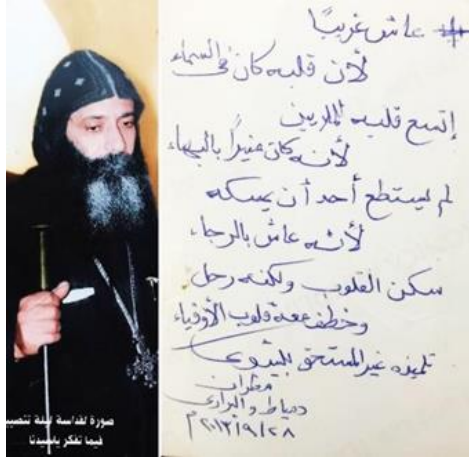 عاش غريبًا
لأن قلبه كان في السماء
إتسع قلبه للملايين
لأنه كان منيراً بالبهاء
لم يستطع أحد أن يمسكه
لأنه عاش بالرجاء
سكن القلوب ولكنه رحل
وخطف معه قلوب الأوفياء
تلميذه غير المستحق بيشوى
مطران
دمياط والبرارى
٢٠١٣/٩/٢٨م
صورة لقداسة ليلة تنصيب
فيما تفكر ياسيدنا